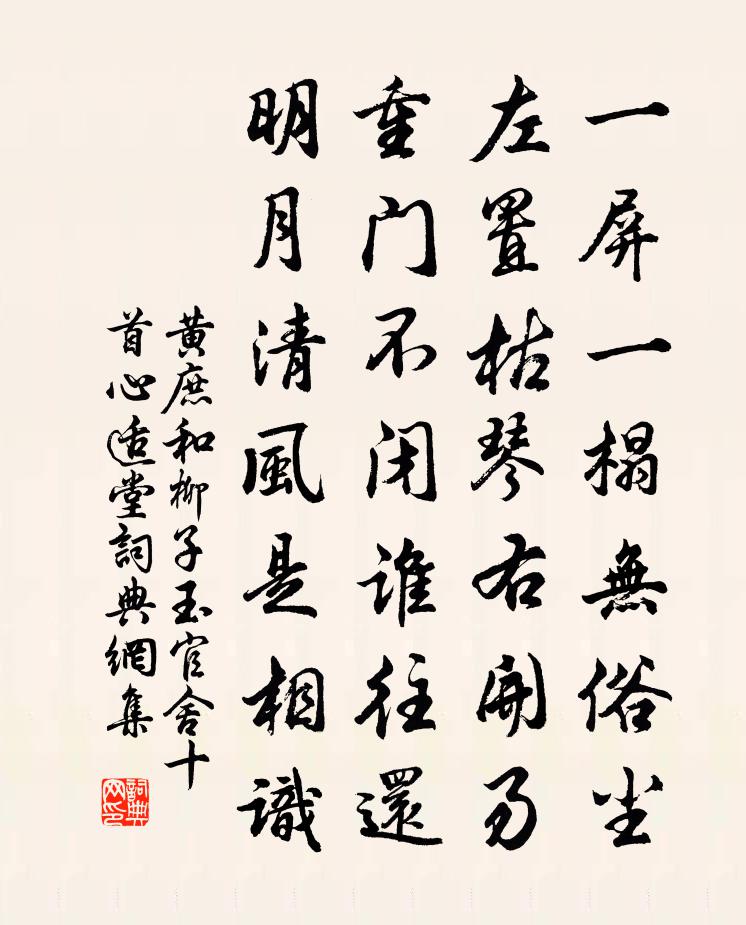 一屏一榻無俗尘
左置枯琴右開易
重门不闭誰往還
明月清風是相識
黄庶和柳子玉官舍十
首心适堂詞典網集
詞典网印